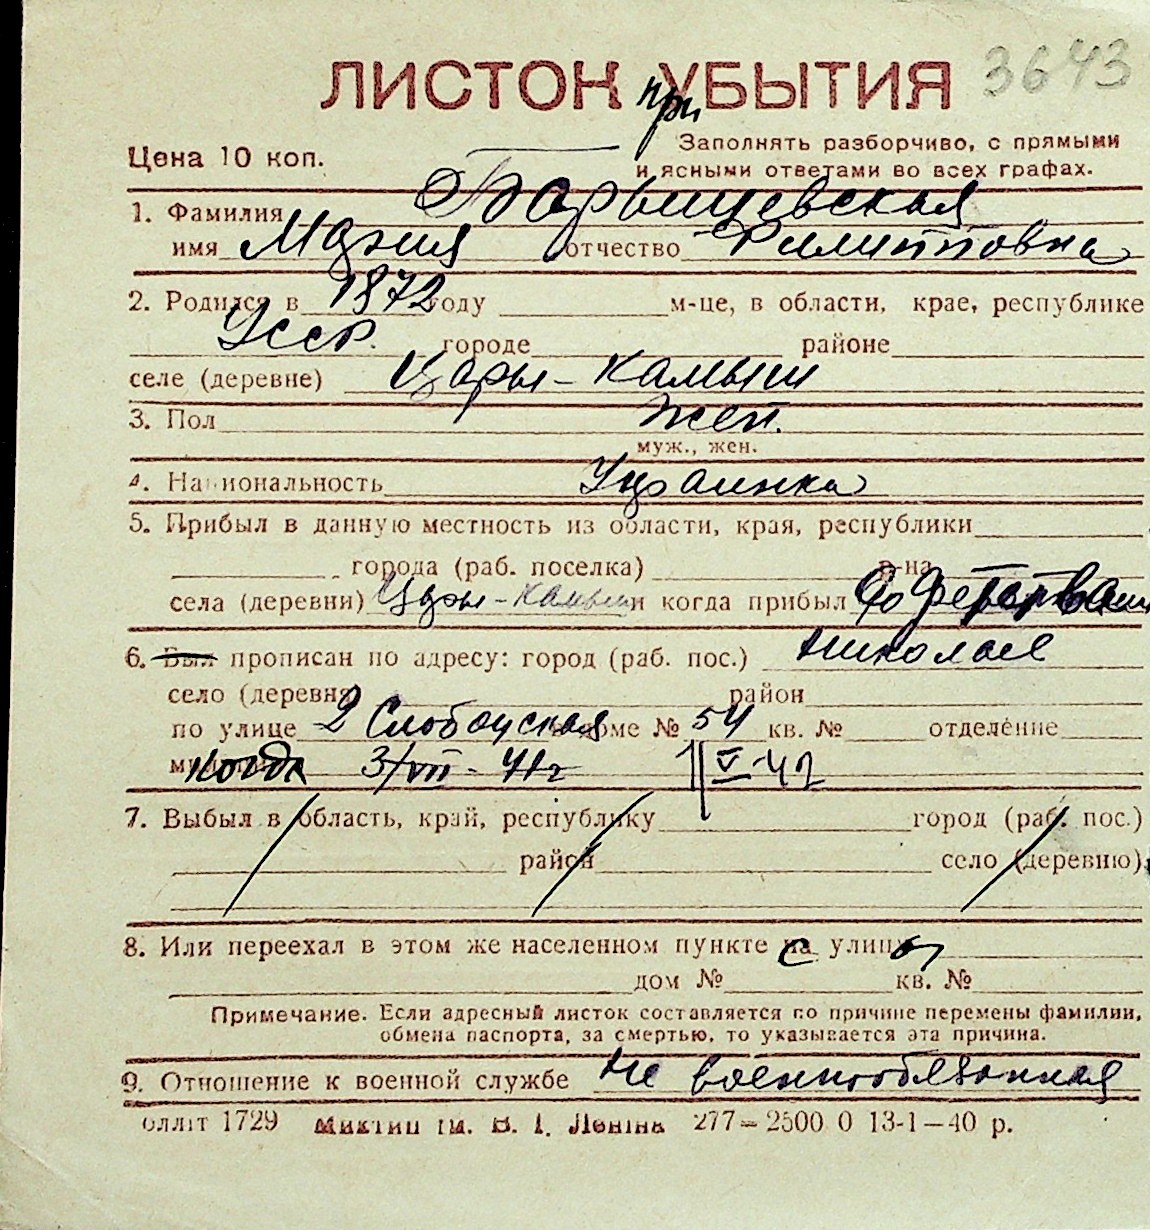 3643
ЛИСТОК при УБЫТИЯ
Цена 10 коп.
Заполнять разборчиво, с прямыми
и ясными ответами во всех графах.
1. Фамилия Барышевская
имя Мария отчество Филипповна
2. Родился в 1872 году м-це, в области, крае, республике
Усср. городе районе
селе (деревне) Цары-Камыш
3. Пол жен.
муж., жен.
4. Национальность Украинка
5. Прибыл в данную местность из области, края, республики
города (раб. поселка) р-на
села (деревни) Цары-Камыш и когда прибыл
6. Был прописан по адресу: город (раб. пос.) Николаев
село (деревня) район
по улице 2 Слободская доме № 54 кв. № отделение
когда 3/VII-41г 1/V-42
7. Выбыл в область, край, республику город (раб. пос.)
район село (деревню)
8. Или переехал в этом же населенном пункте с улицы
дом № кв. №
Примечание. Если адресный листок составляется по причине перемены фамилии,
обмена паспорта, за смертью, то указывается эта причина.
9. Отношение к военной службе Не военнообязанная
оллiт 1729 ім. В. І. Леніна 277—2500 0 13-1—40 р.